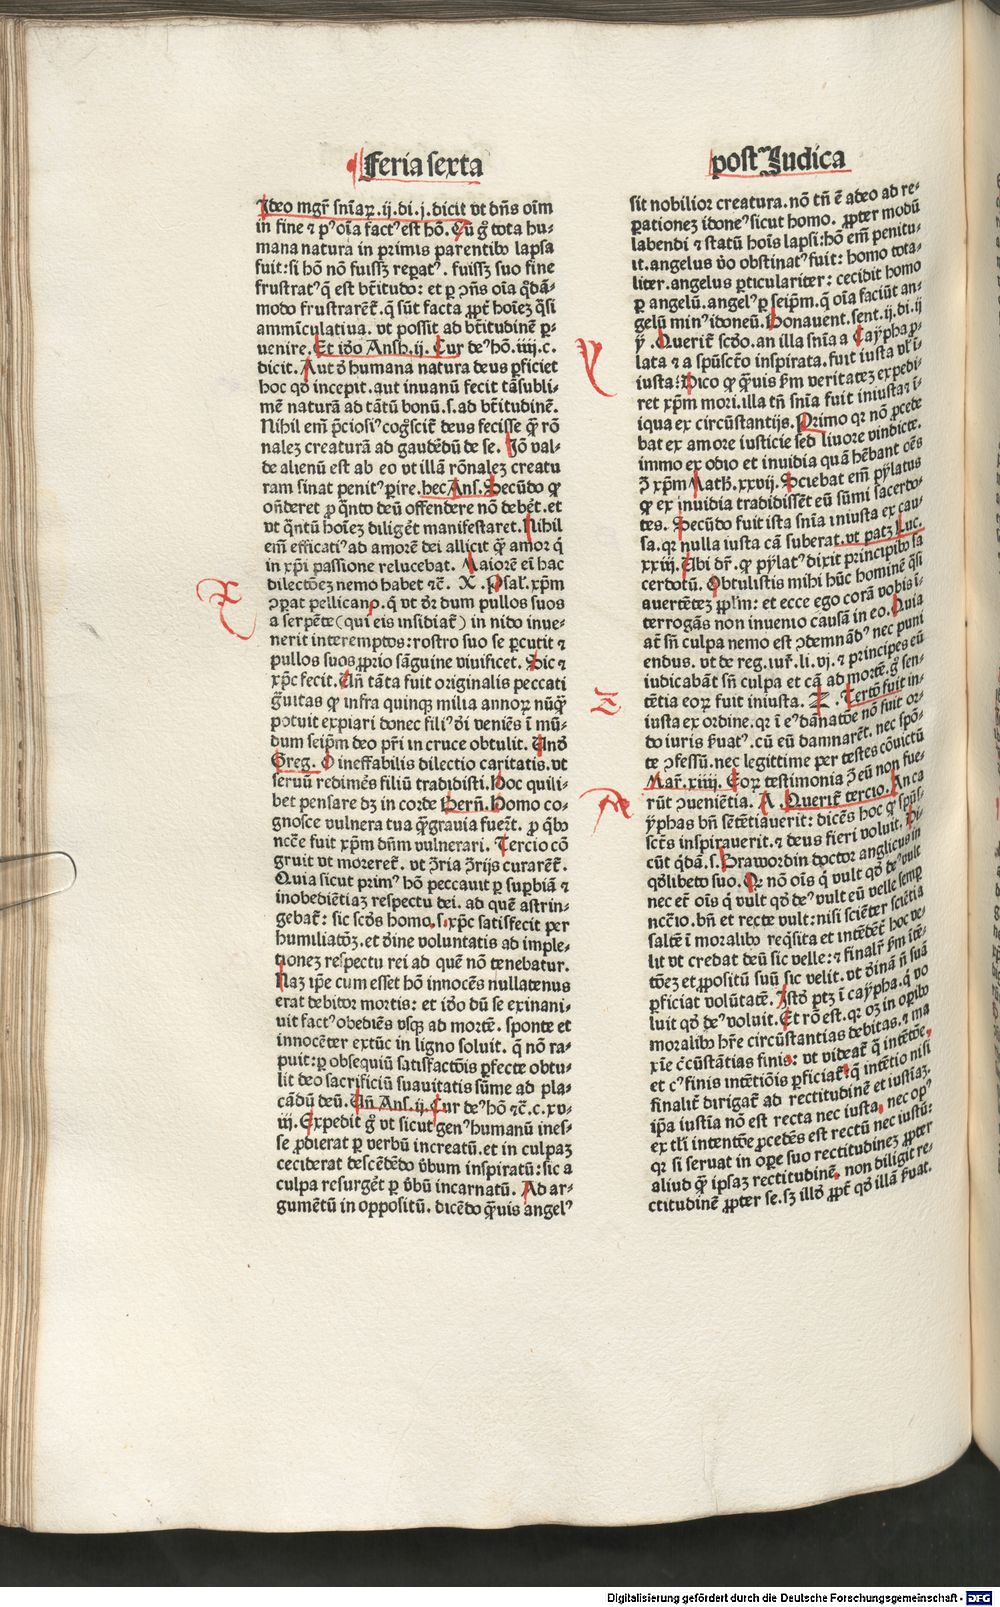 Feria sexta
post Judica
Ideo mgr̄ sniaꝝ.ij.di.j.dicit vt dn̄s oīm
in fine ⁊ ꝓ oīa factꝰ est hō. Cū gͦ tota hu⸗
mana natura in primis parentibꝰ lapsa
fuit: si hō nō fuissꝫ repatꝰ. fuissꝫ suo fine
frustratꝰ q̄ est bt̄itudo: et ꝑ ꝯn̄s oīa q̄dā⸗
modo frustrarēt̄. q̄ sūt facta ꝓpt̄ hoīeꝫ q̄si
amminiculatiua. vt possit ad bt̄itudinē ꝑ⸗
venire. Et iḋo Ansh.ij. Cur deꝰ hō.iiij.c.
dicit. Aut ḋ humana natura deus ꝑficiet
hoc qḋ incepit. aut inuanū fecit tā subli⸗
mē naturā ad tātū bonū.s.ad bt̄itudinē.
Nihil em̄ p̄ciosiꝰ cogͦscit̄ deus fecisse q̄ꝫ rō
nalez creaturā ad gaudēdū de se. Iō val⸗
de alienū est ab eo vt illā rōnalez creatu
ram sinat penitꝰ ꝑire. hec Ans. Secūdo ꝙ
on̄deret ꝓ q̄nto deū offendere nō debet̄. et
vt q̄ntū hoīeꝫ diligēt manifestaret. Nihil
em̄ efficatiꝰ ad amorē dei allicit q̄ꝫ amor q̄
in xp̄i passione relucebat. Maiorē ei hac
dilectōeꝫ nemo habet ⁊c̄. X. Psal̄. xp̄m
ꝯpat pellicano. q̄ vt dr̄ dum pullos suos
a serpēte (qui eis insidiat̄) in nido inue⸗
nerit interemptos: rostro suo se ꝑcutit ⁊
pullos suos ꝓprio sāguine viuificet. Sic ⁊
xp̄c fecit. Un̄ tāta fuit originalis peccati
gͣuitas ꝙ infra quinqꝫ milia annoꝝ nūq̄
potuit expiari donec filiꝰ dī veniēs ī mū⸗
dum seip̄m deo pr̄i in cruce obtulit. Unḋ
Greg. O ineffabilis dilectio caritatis. vt
seruū redimēs filiū tradidisti. Hoc quili⸗
bet pensare dꝫ in corde Bern̄. Homo co⸗
gnosce vulnera tua q̄ꝫ grauia fuerꝭt. ꝓ q̄bꝰ
ncc̄e fuit xp̄m dn̄m vulnerari. Tercio cō
gruit vt moreret̄. vt ꝯria ꝯrijs curarēt̄.
Quia sicut primꝰ hō peccauit ꝑ supbiā ⁊
inobediētiaꝫ respectu dei. ad quē astrin⸗
gebat̄: sic scḋs homo.s.xp̄c satisfecit per
humiliatōꝫ.et ḋine voluntatis ad imple⸗
tionez respectu rei ad quē nō tenebatur.
Naꝫ ip̄e cum esset hō innocēs nullatenus
erat debitor mortis: et iḋo dū se exinani⸗
uit factꝰ obediēs vsqꝫ ad mortē. sponte et
innocēter extūc in ligno soluit. q̄ nō ra⸗
puit: ꝑ obsequiū satisfactōis ꝑfecte obtu⸗
lit deo sacrificiū suauitatis sūme ad pla⸗
cādū deū. Un̄ Ans.ij.Cur deꝰ hō ⁊c̄.c.xv⸗
iij. Expedit gͦ vt sicut genꝰ humanū ines⸗
se ꝓdierat ꝑ verbū increatū. et in culpaꝫ
ceciderat descēdēdo ṽbum inspiratū: sic a
culpa resurgēt ꝑ ṽbū incarnatū. Ad ar⸗
gumētū in oppositū. dicēdo q̄ꝫuis angelꝰ
sit nobilior creatura. nō tn̄ ē adeo ad re⸗
ꝑationez idoneꝰ sicut homo. ꝓpter modū
labendi ⁊ statū hoīs lapsi: hō em̄ penitu⸗
it. angelus ṽo obstinatꝰ fuit: homo tota⸗
liter. angelus ꝑticulariter: cecidit homo
ꝑ angelū. angelꝰ ꝑ seip̄m. q̄ oīa faciūt an⸗
gelū minꝰ idoneū. Bonauent. sent.ij.di.ij
Y. Querit̄ scḋo. an illa snīa a Caypha ꝓ⸗
lata ⁊ a spūscto inspirata. fuit iusta vl̄ ī⸗
iusta: Dico ꝙ q̄ꝫuis s̄m veritatez expedi⸗
ret xp̄m mori. illa tn̄ snīa fuit iniusta ⁊ ī⸗
iqua ex circūstantijs. Primo qꝛ nō ꝓcede
bat ex amore iusticie sed liuore vindicte.
immo ex odio et inuidia quā hēbant oēs
ꝯ xp̄m Math̄.xxvij. Sciebat em̄ pylatus
ꝙ ex inuidia tradidissēt eū sūmi sacerdo⸗
tes. Secūdo fuit ista snīa iniusta ex cau⸗
sa. qꝛ nulla iusta cā suberat. vt patꝫ Luc.
xxiij. Ubi dr̄. ꝙ pylatꝰ dixit principibꝰ sa
cerdotū. Obtulistis mihi hūc hominē q̄si
auertētez ꝓpl̄m: et ecce ego corā vobis ī⸗
terrogās non inuenio causā in eo. Quia
at̄ sn̄ culpa nemo est ꝯdemnādꝰ nec puni
endus. vt de reg.iur̄.li.vj. ⁊ principes eū
iudicabāt sn̄ culpa et cā ad mortē. gͦ sen⸗
tētia eoꝝ fuit iniusta. Z. Tertō fuit in⸗
iusta ex ordine. qꝛ ī eꝰ dānatōe nō fuit or⸗
do iuris s̄uatꝰ. cū eū damnarēt. nec spō⸗
te ꝯfessū. nec legittime per testes cōuictū
Mar̄.xiiij. Eoꝝ testimonia ꝯ eū non fue⸗
rūt ꝯueniētia. A. Querit̄ tercio. An ca
yphas bn̄ sētētiauerit: dicēs hoc ꝙ spūs⸗
scūs inspirauerit. ⁊ deus fieri voluit. Di⸗
cūt q̄dā.s. Brawordin doctor anglicus in
qḋlibeto suo. Qꝛ nō oīs q̄ vult qḋ deꝰ vult
nec et̄ oīs q̄ vult qḋ deꝰ vult eū velle semꝑ
ncc̄io. bn̄ et recte vult: nisi sciēter sciētia
saltē ī moralibꝰ req̄sita et intēdēt̄ hoc ve⸗
lit vt credat deū sic velle: ⁊ finalr̄ s̄m itē⸗
tōeꝫ et ꝓpositū suū sic velit. vt ḋinā n̄ suā
ꝑficiat volūtatē. Istḋ ptꝫ ī caypha. q̄ vo
luit qḋ deꝰ voluit. Et rō est. qꝛ oꝫ in opibꝰ
moralibꝰ hr̄e circūstantias debitas. ⁊ ma
xīe c̄cūstātias finis: vt videat̄ q̄ intētōe,
et cꝰ finis intētiōis ꝑficiat̄: q̄ intētio nisi
finalit̄ dirigat̄ ad rectitudinē et iustiaꝫ.
ip̄a iustia nō est recta nec iusta, nec opꝰ
ex tl̄i intentōe ꝓcedēs est rectū nec iustū:
qꝛ si seruat in ope suo rectitudinez ꝓpter
aliud q̄ꝫ ipsaꝫ rectitudinē, non diligit re⸗
ctitudinē ꝓpter se. sꝫ illḋ ꝓpt̄ qḋ illā s̄uat.
X
Y
Z
A
Digitalisierung gefördert durch die Deutsche Forschungsgemeinschaft - DFG